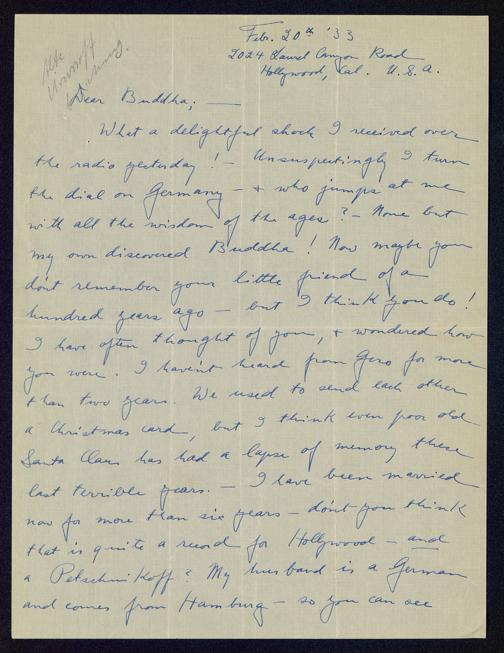 Feb. 20th '33
2024 Laurel Canyon Road
Hollywood, Cal. U.S.A.
Alte
Dear Buddha; —
What a delightful shock I received over
the radio yesterday! — Unsuspectingly I turn
the dial on Germany — & who jumps at me
with all the wisdom of the ages? — None but
my own discovered Buddha! Now maybe you
don't remember your little friend of a
hundred years ago — but I think you do!
I have often thought of you, & wondered how
you were. I havent heard from Gero for more
than two years. We used to send each other
a Christmas card, but I think even poor old
Santa Claus has had a lapse of memory these
last terrible years. — I have been married
now for more than six years — don't you think
that is quite a record for Hollywood — and
a Petschnikoff? My husband is a German
and comes from Hamburg — so you can see